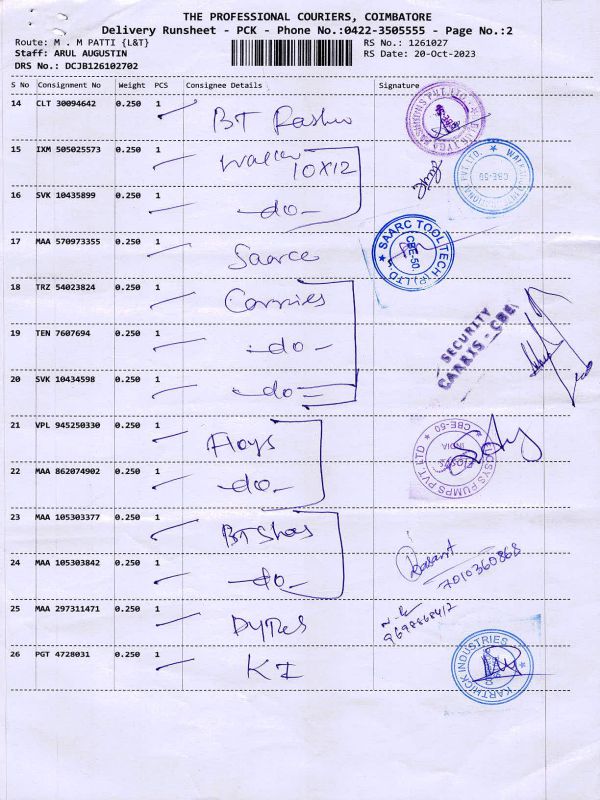 THE PROFESSIONAL COURIERS, COIMBATORE
Delivery Runsheet - PCK - Phone No.:0422-3505555 - Page No.:2
Route: M . M PATTI {L&T} RS No.: 1261027
Staff: ARUL AUGUSTIN RS Date: 20-Oct-2023
DRS No.: DCJB126102702
S No Consignment No Weight PCS Consignee Details Signature
14 CLT 30094642 0.250 1 BT
15 IXM 505025573 0.250 1 10X12
CBE-50
16 SVK 10435899 0.250 1 -do-
17 MAA 570973355 0.250 1 Saarce
SAARC TOOLTECH (P) LTD. CBE-50.
18 TRZ 54023824 0.250 1 Carries
SECURITY
CARRIS - CBE
19 TEN 7607694 0.250 1 -do-
20 SVK 10434598 0.250 1 -do-
21 VPL 945250330 0.250 1 Floys
PUMPS PVT LTD CBE-50 INDIA
22 MAA 862074902 0.250 1 -do-
23 MAA 105303377 0.250 1 BT Shos
24 MAA 105303842 0.250 1 -do-
7010360868
25 MAA 297311471 0.250 1
9698868412
26 PGT 4728031 0.250 1 KI
KARTHICK INDUSTRIES